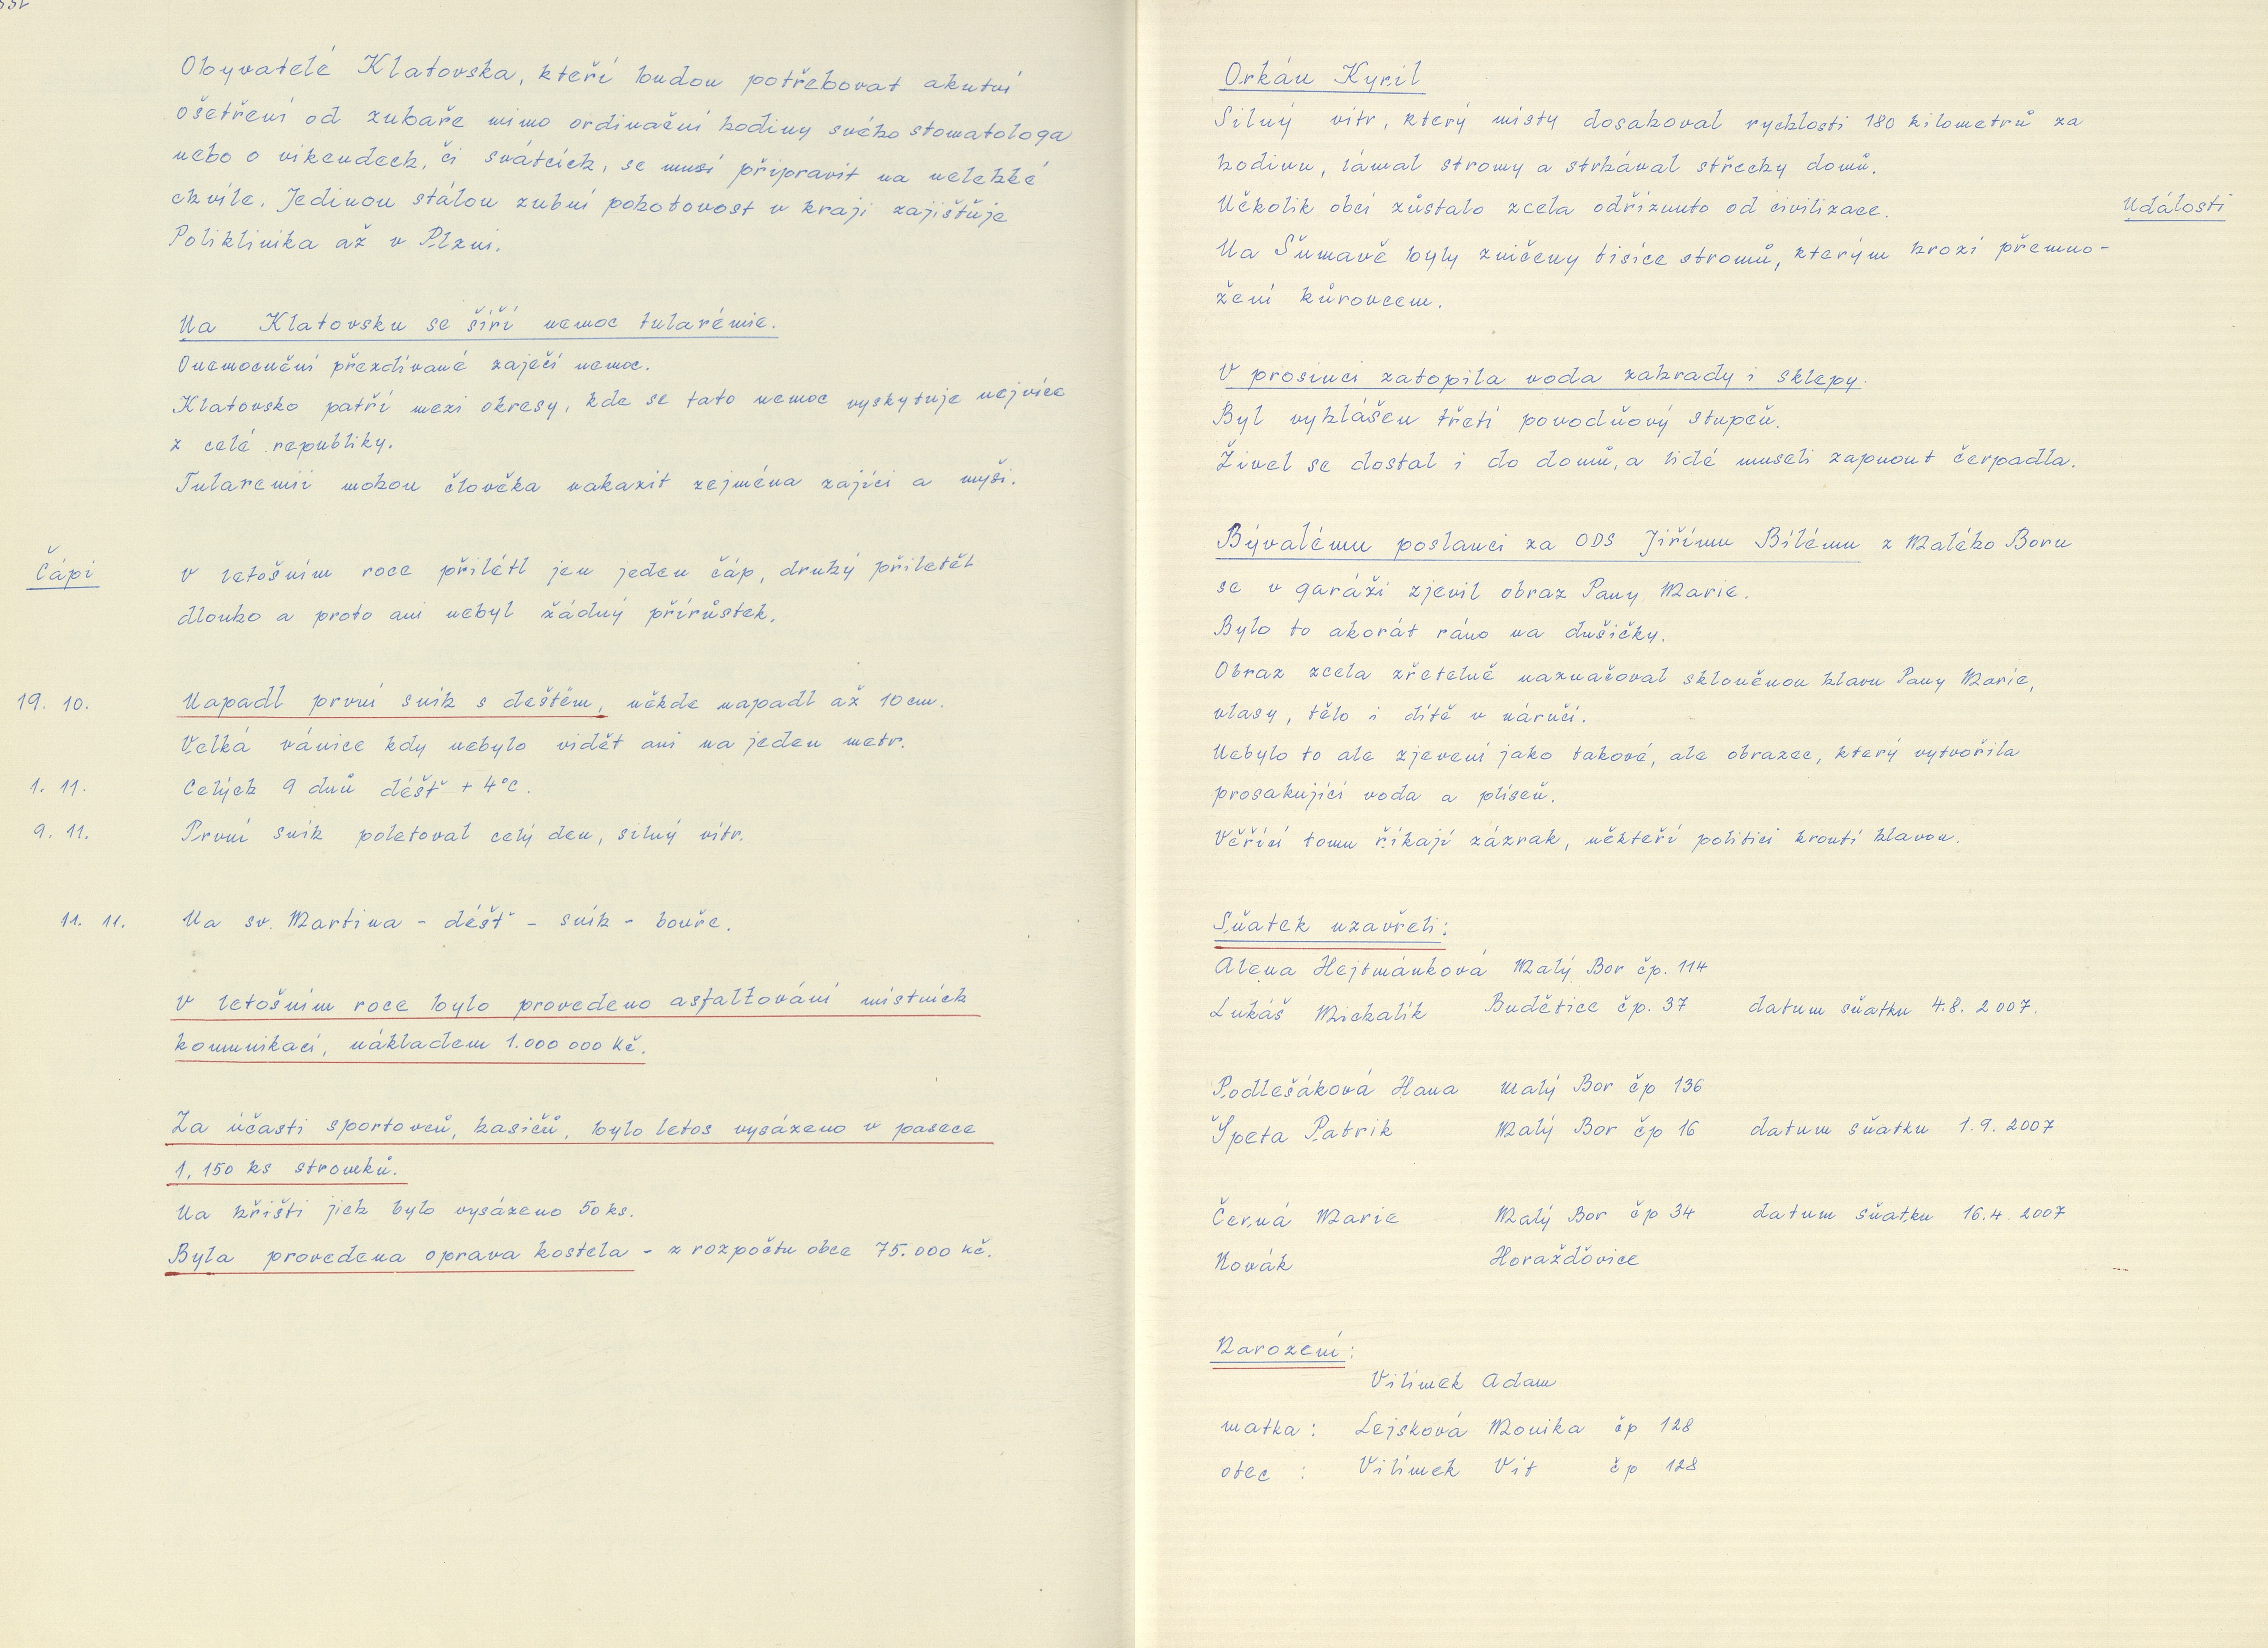 Obyvatelé Klatovska, kteří budou potřebovat akutní
ošetření od zubaře mimo ordinační hodiny svého stomatologa
nebo o víkendech, či svátcích, se musí připravit na nelehké
chvíle. Jedinou stálou zubní pohotovost v kraji zajišťuje
Poliklinika až v Plzni.
Na Klatovsku se šíří nemoc tularémie.
Onemocnění přezdívané zaječí nemoc.
Klatovsko patří mezi okresy, kde se tato nemoc vyskytuje nejvíce
z celé republiky.
Tularemií mohou člověka nakazit zejména zajíci a myši.
Čápi
V letošním roce přilétl jen jeden čáp, druhý přiletěl
dlouho a proto ani nebyl žádný přírůstek.
19. 10. Napadl první sníh s deštěm, někde napadl až 10 cm.
Velká vánice kdy nebylo vidět ani na jeden metr.
1. 11. Celých 9 dnů déšť + 4°C.
9. 11. První sníh poletoval celý den, silný vítr.
11. 11. Na sv. Martina - déšť - sníh - bouře.
V letošním roce bylo provedeno asfaltování místních
komunikací, nákladem 1.000 000 Kč.
Za účasti sportovců, hasičů, bylo letos vysázeno v pasece
1.150 ks stromků.
Na hřišti jich bylo vysázeno 50 ks.
Byla provedena oprava kostela - z rozpočtu obce 75.000 Kč.
Orkán Kyril
Silný vítr, který místy dosahoval rychlosti 180 kilometrů za
hodinu, lámal stromy a strhával střechy domů.
Několik obcí zůstalo zcela odříznuto od civilizace.
Události
Na Šumavě byly zničeny tisíce stromů, kterým hrozí přemno-
žení kůrovcem.
V prosinci zatopila voda zahrady i sklepy.
Byl vyhlášen třetí povodňový stupeň.
Živel se dostal i do domů, a lidé museli zapnout čerpadla.
Bývalému poslanci za ODS Jiřímu Bílému z Malého Boru
se v garáži zjevil obraz Pany Marie.
Bylo to akorát ráno na dušičky.
Obraz zcela zřetelně naznačoval skloněnou hlavu Pany Marie,
vlasy, tělo i dítě v náručí.
Nebylo to ale zjevení jako takové, ale obrazec, který vytvořila
prosakující voda a plíseň.
Věřící tomu říkají zázrak, někteří politici kroutí hlavou.
Sňatek uzavřeli:
Alena Hejtmánková Malý Bor čp. 114
Lukáš Michalík Budětice čp. 37 datum sňatku 4.8. 2007.
Podlešáková Hana Malý Bor čp 136
Špeta Patrik Malý Bor čp 16 datum sňatku 1.9. 2007
Černá Marie Malý Bor čp 34 datum sňatku 16.4. 2007
Novák Horažďovice
Narození:
Vilímek Adam
matka: Lejsková Monika čp 128
otec : Vilímek Vít čp 128